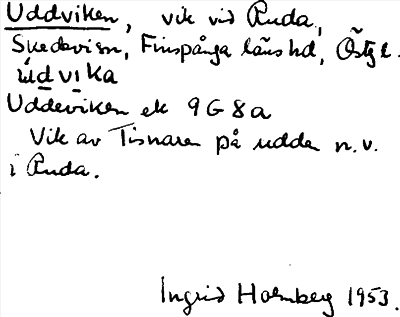 Uddviken, vik vid Ruda,
Skedevi sn, Finspånga läns hd, Östgl.
údvika
Uddeviken ek 9G8a
Vik av Tisnaren på udden n.v.
i Ruda.
Ingrid Holmberg 1953.